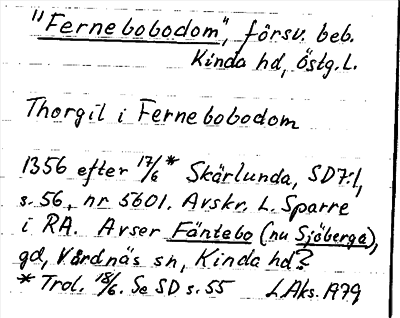 "Fernebobodom", försv. beb.
Kinda hd, Östg.l.
Thorgil i Fernebobodom
1356 efter 17/6* Skärlunda, SD7:1,
s. 56, nr 5601. Avskr. L. Sparre
i RA. Avser Fäntebo (nu Sjöberga),
gd, Vårdnäs sn, Kinda hd?
* Trol. 18/6. Se SD s. 55 LAks. 1979